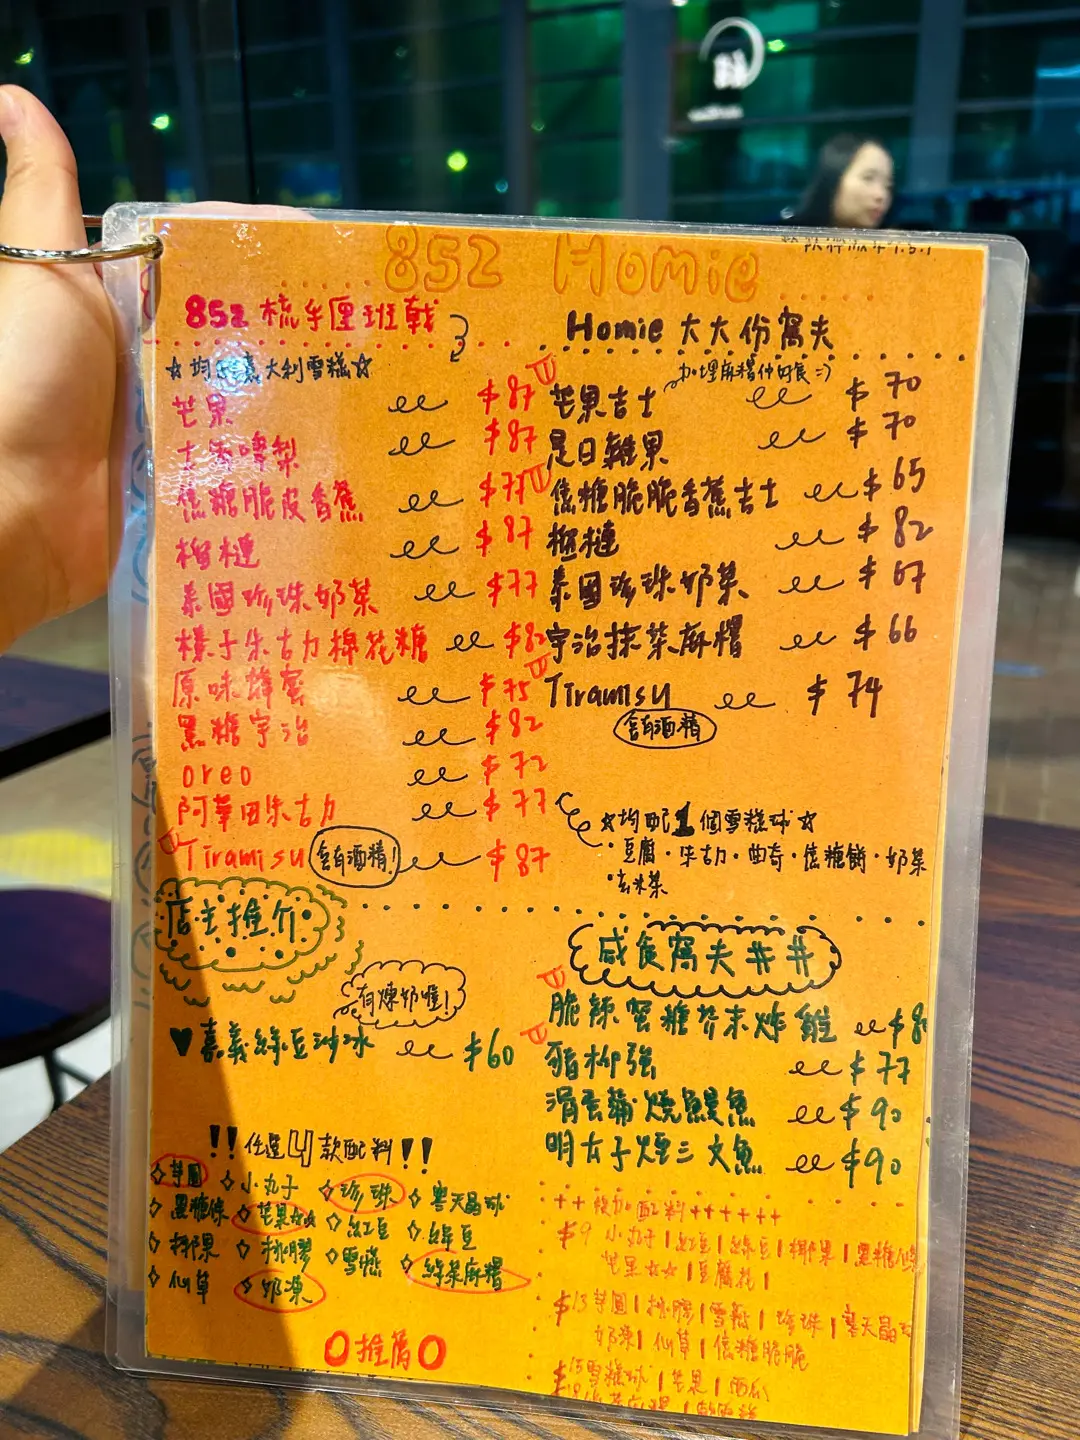 852 Homie
852 梳乎厘班戟
☆均 意大利雪糕☆
芒果 $87
士多啤梨 $87
焦糖脆皮香蕉 $77
榴槤 $87
泰國珍珠奶茶 $77
榛子朱古力棉花糖 $82
原味蜂蜜 $75
黑糖宇治 $82
oreo $72
阿華田朱古力 $77
Tiramisu 含有酒精! $87
Homie 大大份窩夫
加埋麻糬仲好食=)
芒果吉士 $70
是日雜果 $70
焦糖脆脆香蕉吉士 $65
榴槤 $82
泰國珍珠奶茶 $67
宇治抹茶麻糬 $66
Tiramisu $74
含有酒精
☆均配1個雪糕球☆
·豆腐·朱古力·曲奇·焦糖餅·奶茶
·玄米茶
店主推介
有煉奶喔!
♥嘉義綠豆沙冰 $60
!!任選4款配料!!
◇芋圓 ◇小丸子 ◇珍珠 ◇寒天晶球
◇黑糖條 ◇芒果 ◇紅豆 ◇綠豆
◇椰果 ◇桃膠 ◇雪燕 ◇綠茶麻糬
◇仙草 ◇奶凍
O推薦O
咸食窩夫##
脆辣蜜糖芥末炸雞 $8
豬柳強 $77
滑蛋蒲燒鰻魚 $90
明太子煙三文魚 $90
++後加配料++++++
$9 小丸子|紅豆|綠豆|椰果|黑糖條
芒果 |豆腐花|
$13芋圓|桃膠|雪燕|珍珠|寒天晶球
奶凍|仙草|焦糖脆脆
$15雪糕球|芒果|西瓜